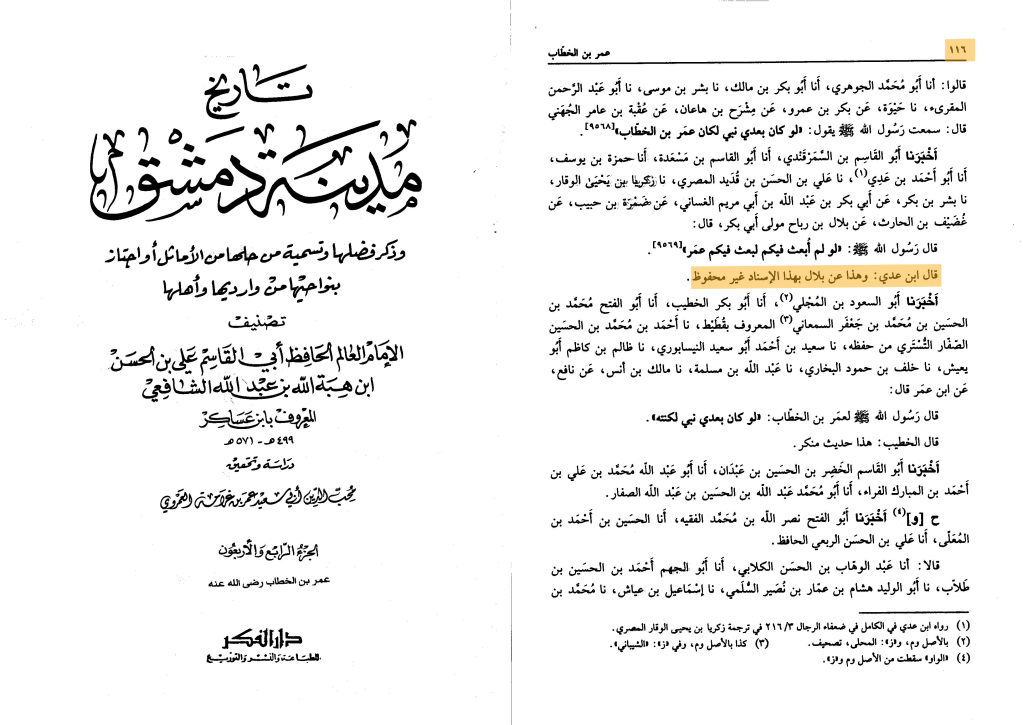 عمر بن الخطّاب
١١٦
قالوا: أنا أَبُو مُحَمَّد الجوهري، أَنا أَبُو بكر بن مالك، نا بشر بن موسى، نا أَبُو عَبْد الرَّحمن
المقرىء، نا حَيْوَة، عَن بكر بن عمرو، عَن مِشْرَح بن هاعان، عَن عُقْبة بن عامر الجُهَني
قال: سمعت رَسُول الله ﷺ يقول: «لو كان بعدي نبي لكان عمَر بن الخطاب»[٩٥٦٨].
أَخْبَرَنا أَبُو القَاسِم بن السَّمَرْقَنْدي، أَنا أَبُو القاسم بن مَسْعَدة، أَنا حمزة بن يوسف،
أَنا أَبُو أَحْمَد بن عَدِي(١)، نا عَلي بن الحسن بن قُدَيد المصري، نا زكريا بن يَحْيَىٰ الوقار،
نا بشر بن بكر، عَن أَبي بكر بن عَبْد اللّه بن أَبي مريم الغساني، عَن ضَمْرَة بن حبيب، عَن
غُضَيْف بن الحارث، عَن بلال بن رباح مولى أَبي بكر، قال:
قال رَسُول الله ﷺ: «لو لم أُبعث فيكم لبعث فيكم عمَر»[٩٥٦٩].
قال ابن عدي: وهذا عن بلال بهذا الإسناد غير محفوظ.
أَخْبَرَنا أَبُو السعود بن المُجْلي(٢)، أَنا أَبُو بكر الخطيب، أَنا أَبُو الفتح مُحَمَّد بن
الحسين بن مُحَمَّد بن جَعْفَر السمعاني(٣) المعروف بقُطَيْط، نا أَحْمَد بن مُحَمَّد بن الحسين
الصّفّار التُسْتَري من حفظه، نا سعيد بن أَحْمَد أَبُو سعيد النيسابوري، نا ظالم بن كاظم أَبُو
يعيش، نا خلف بن حمود البخاري، نا عَبْد اللّه بن مسلمة، نا مالك بن أنس، عَن نافع،
عَن ابن عمَر قال:
قال رَسُول الله ﷺ لعمَر بن الخطّاب: «لو كان بعدي نبي لكنته».
قال الخطيب: هذا حديث منكر.
أَخْبَرَنا أَبُو القاسم الخَضِر بن الحسين بن عَبْدَان، أَنا أَبُو عَبد اللّه مُحَمَّد بن علي بن
أَحْمَد بن المبارك الفراء، أَنا أَبُو مُحَمَّد عَبْد اللّه بن الحسين بن عَبْد اللّه الصفار.
ح [و](٤) أَخْبَرَنا أَبُو الفتح نصر اللّه بن مُحَمَّد الفقيه، أَنا الحسين بن أَحْمَد بن
المُعَلّى، أَنا عَلي بن الحسَن الربعي الحافظ.
قالا: أَنا عَبْد الوهّاب بن الحسَن الكلابي، أَنا أَبُو الجهم أَحْمَد بن الحسين بن
طَلاّب، نا أَبُو الوليد هشام بن عمّار بن نُصَير السُّلَمي، نا إِسْمَاعيل بن عياش، نا مُحَمَّد بن
(١) رواه ابن عدي في الكامل في ضعفاء الرجال ٣/ ٢١٦ في ترجمة زكريا بن يحيى الوقار المصري.
(٢) بالأصل وم، و«ز»: المحلى، تصحيف. (٣) كذا بالأصل وم، وفي «ز»: «الشيباني».
(٤) «الواو» سقطت من الأصل وم و«ز».
تاريخ
مدينة دمشق
وذكر فضلها وتسمية من حلها من الأماثل أو اجتاز
بنواحيها من وارديها وأهلها
تصنيف
الإمام العالم الحافظ أبي القاسم علي بن الحسن
ابن هبة الله بن عبد الله الشافعي
المعروف بابن عساكر
٤٩٩ هـ - ٥٧١ هـ
دراسة وتحقيق
محب الدين أبي سعيد عمر بن غرامة العمروي
الجزء الرابع والأربعون
عمر بن الخطاب رضى الله عنه
دار الفكر
للطباعة والنشر والتوزيع